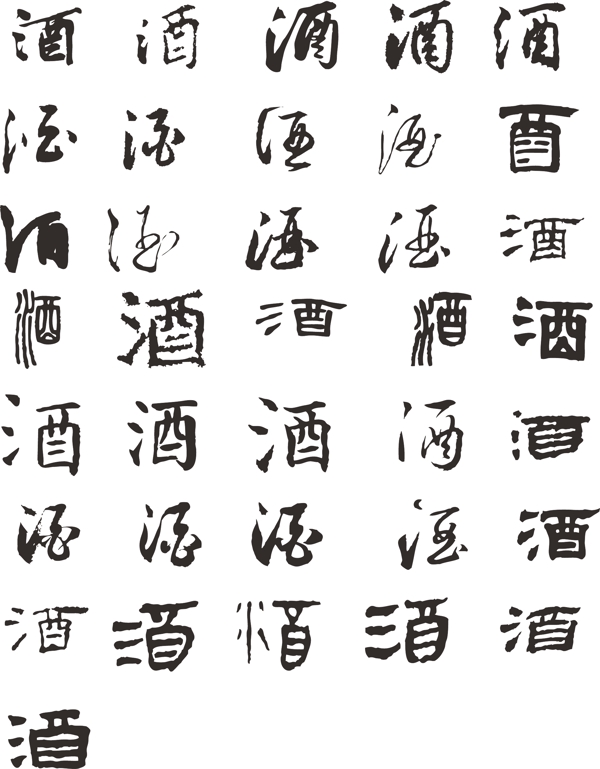 酒 酒 酒 酒 酒
酒 酒 酒 酒 酉
酒 酒 酒 酒 酒
酒 酒 酒 酒 酒
酒 酒 酒 酒 酒
酒 酒 酒 酒 酒
酒 酒 酒 酒 酒
酒